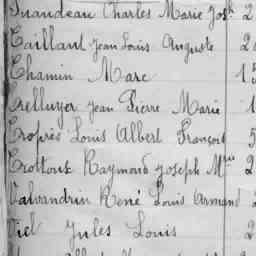 Charles Marie Josh 2
Taillard Jean Louis Auguste 2
Chamin Marc 15
Jean Pierre Marie 1
Troprès Louis Albert François 5
Trottoux Raymond Joseph Mie 2
Valvandrin René Louis Armand 2
Viel Jules Louis 2